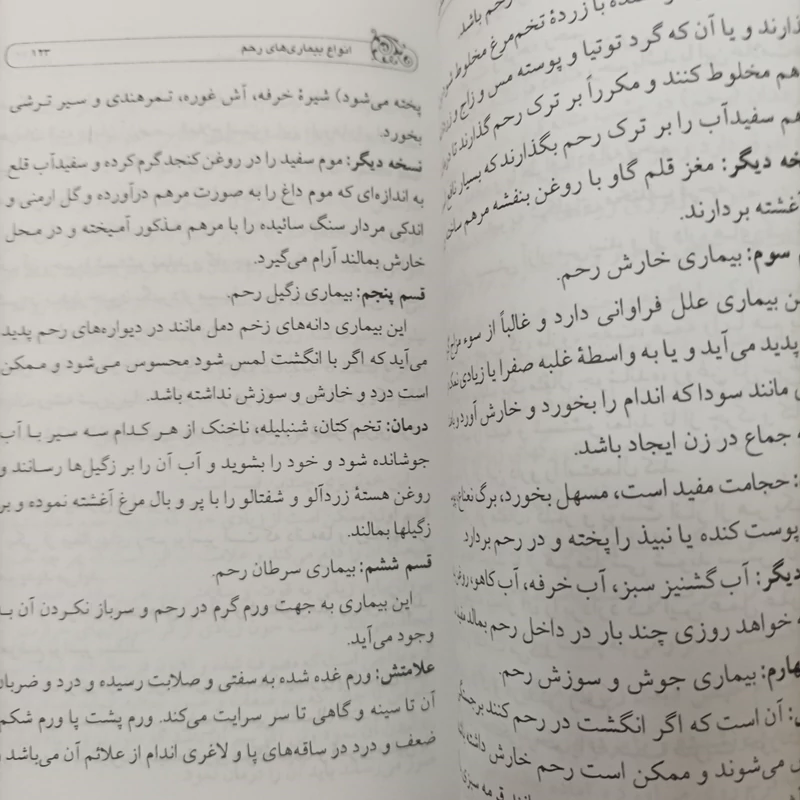 رحم باشد.
با زردهٔ تخم‌مرغ مخلوط
گذارند و یا آن که گرد توتیا و پوسته مس و زاج و
هم مخلوط کنند و مکرراً بر ترک رحم گذارند تا
هم سفیدآب را بر ترک رحم بگذارند که بسیار نافع
دیگر: مغز قلم گاو با روغن بنفشه مرهم
آغشته بردارند.
سوم: بیماری خارش رحم.
بیماری علل فراوانی دارد و غالباً از سوء
پدید می‌آید و یا به واسطهٔ غلبه صفرا یا زیادی
مانند سودا که اندام را بخورد و خارش آورد
جماع در زن ایجاد باشد.
حجامت مفید است، مسهل بخورد، برگ نعناع
پوست کنده یا نبیذ را پخته و در رحم بردارد
دیگر: آب گشنیز سبز، آب خرفه، آب کاهو، روغن
خواهد روزی چند بار در داخل رحم بمالد
بیماری جوش و سوزش رحم.
آن است که اگر انگشت در رحم کنند
می‌شوند و ممکن است رحم خارش داشته
انواع بیماری‌های رحم
۱۲۳
پخته می‌شود) شیرهٔ خرفه، آش غوره، تمرهندی و سیر ترشی
بخورد.
نسخه دیگر: موم سفید را در روغن کنجد گرم کرده و سفیدآب قلع
به اندازه‌ای که موم داغ را به صورت مرهم درآورده و گل ارمنی و
اندکی مردار سنگ سائیده را با مرهم مذکور آمیخته و در محل
خارش بمالند آرام می‌گیرد.
قسم پنجم: بیماری زگیل رحم.
این بیماری دانه‌های زخم دمل مانند در دیواره‌های رحم پدید
می‌آید که اگر با انگشت لمس شود محسوس می‌شود و ممکن
است درد و خارش و سوزش نداشته باشد.
درمان: تخم کتان، شنبلیله، ناخنک از هر کدام سه سیر با آب
جوشانده شود و خود را بشوید و آب آن را بر زگیل‌ها رسانند و
روغن هستهٔ زردآلو و شفتالو را با پر و بال مرغ آغشته نموده و بر
زگیلها بمالند.
قسم ششم: بیماری سرطان رحم.
این بیماری به جهت ورم گرم در رحم و سرباز نکردن آن به
وجود می‌آید.
علامتش: ورم غده شده به سفتی و صلابت رسیده و درد و ضربان
آن تا سینه و گاهی تا سر سرایت می‌کند. ورم پشت پا ورم شکم
ضعف و درد در ساقه‌های پا و لاغری اندام از علائم آن می‌باشد